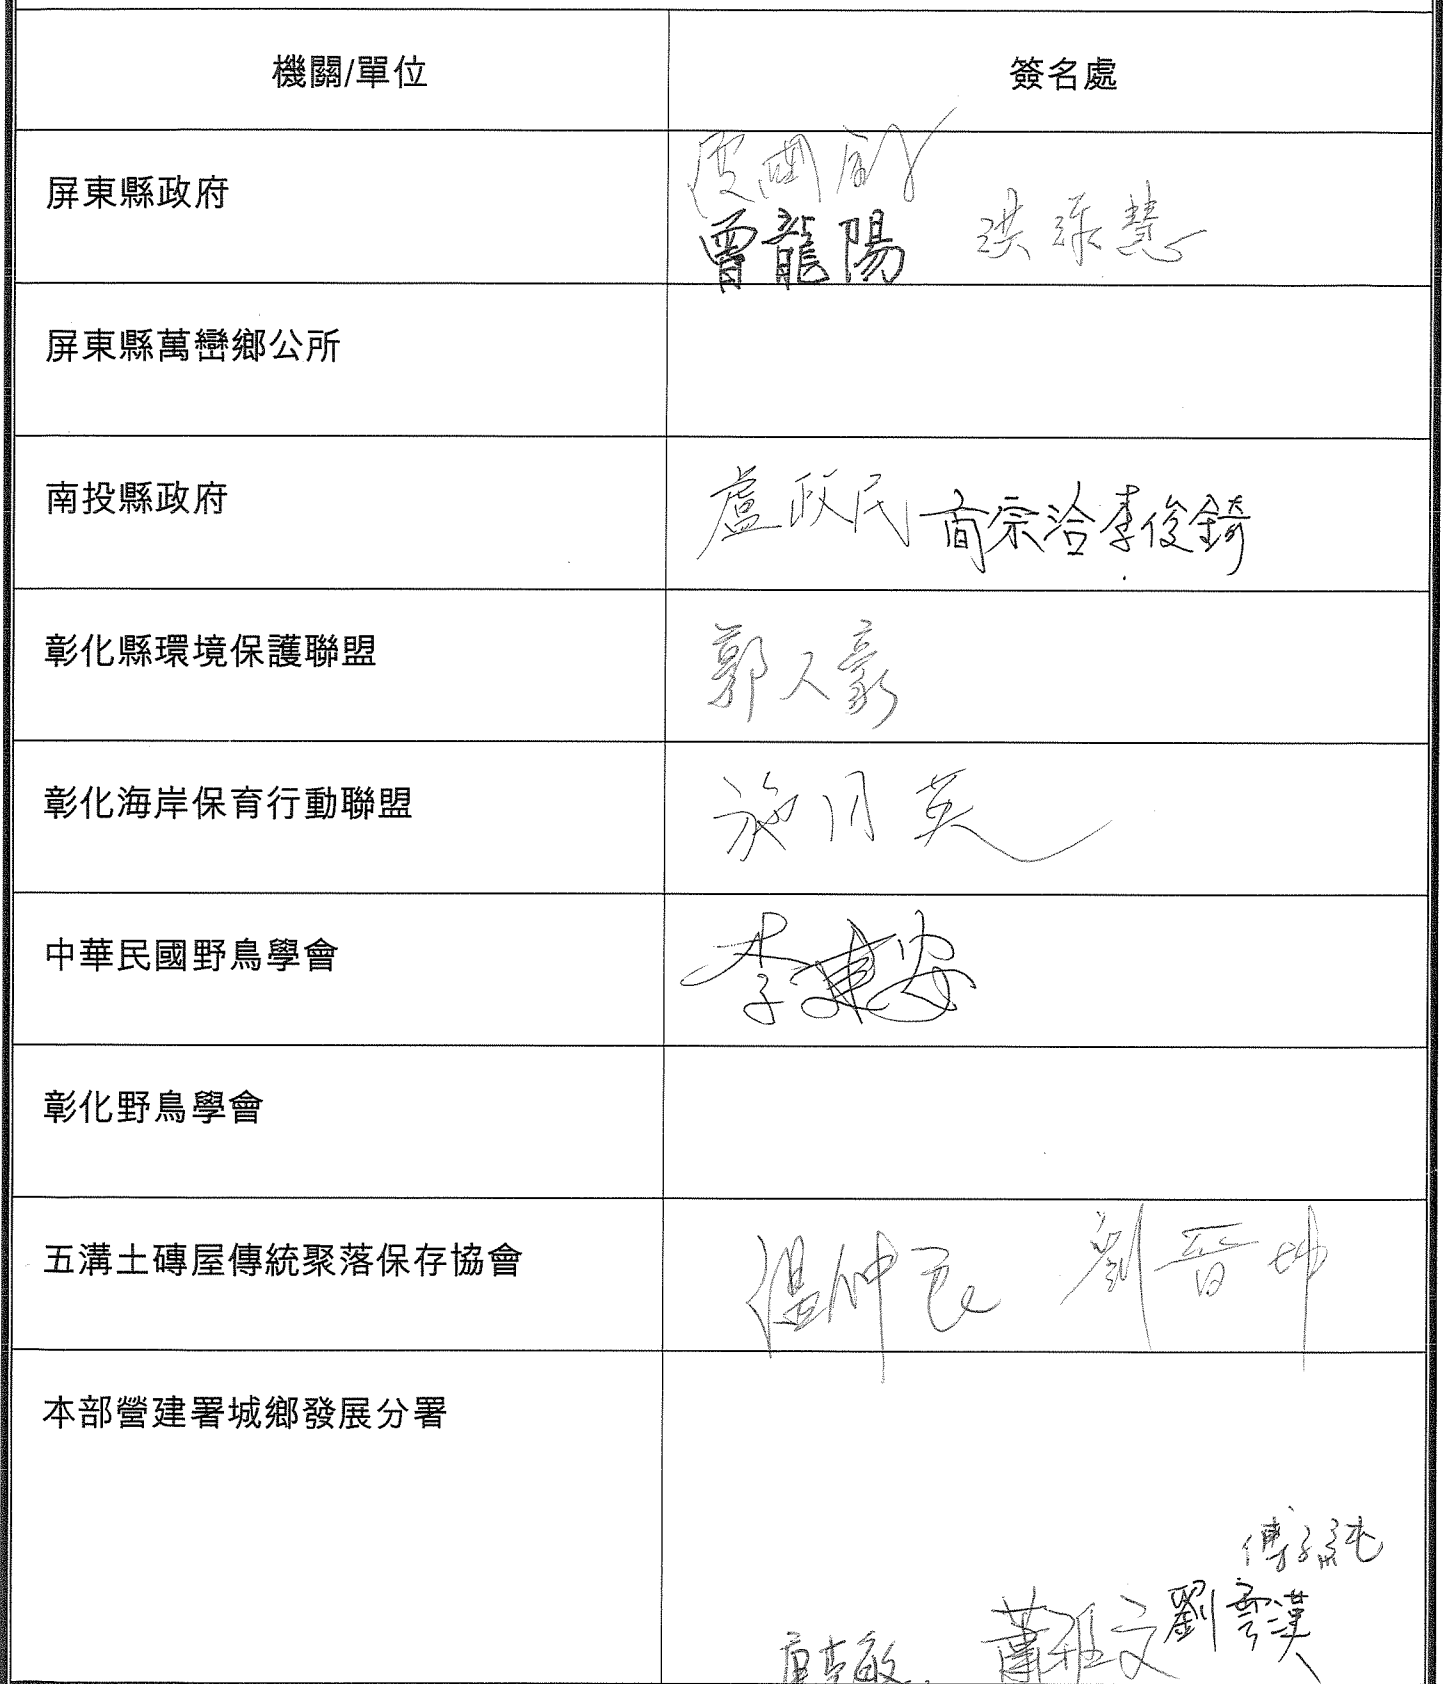 機關/單位 簽名處
屏東縣政府
曾龍陽
屏東縣萬巒鄉公所
南投縣政府 盧政民 李俊錡
彰化縣環境保護聯盟 郭人豪
彰化海岸保育行動聯盟 施月英
中華民國野鳥學會 李建安
彰化野鳥學會
五溝土磚屋傳統聚落保存協會 溫仲良 劉晉坤
本部營建署城鄉發展分署
蕭雅文 劉雲漢